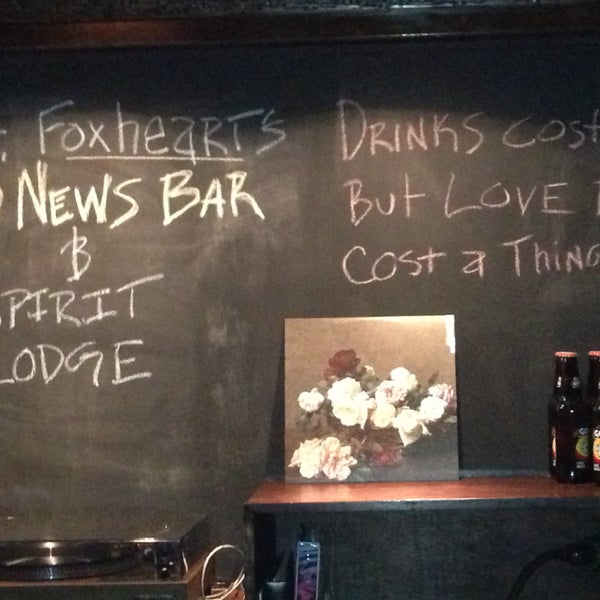 Foxheart's
NEWS BAR
&
SPIRIT
LODGE
DRINKS COST
But LOVE
COST a THING